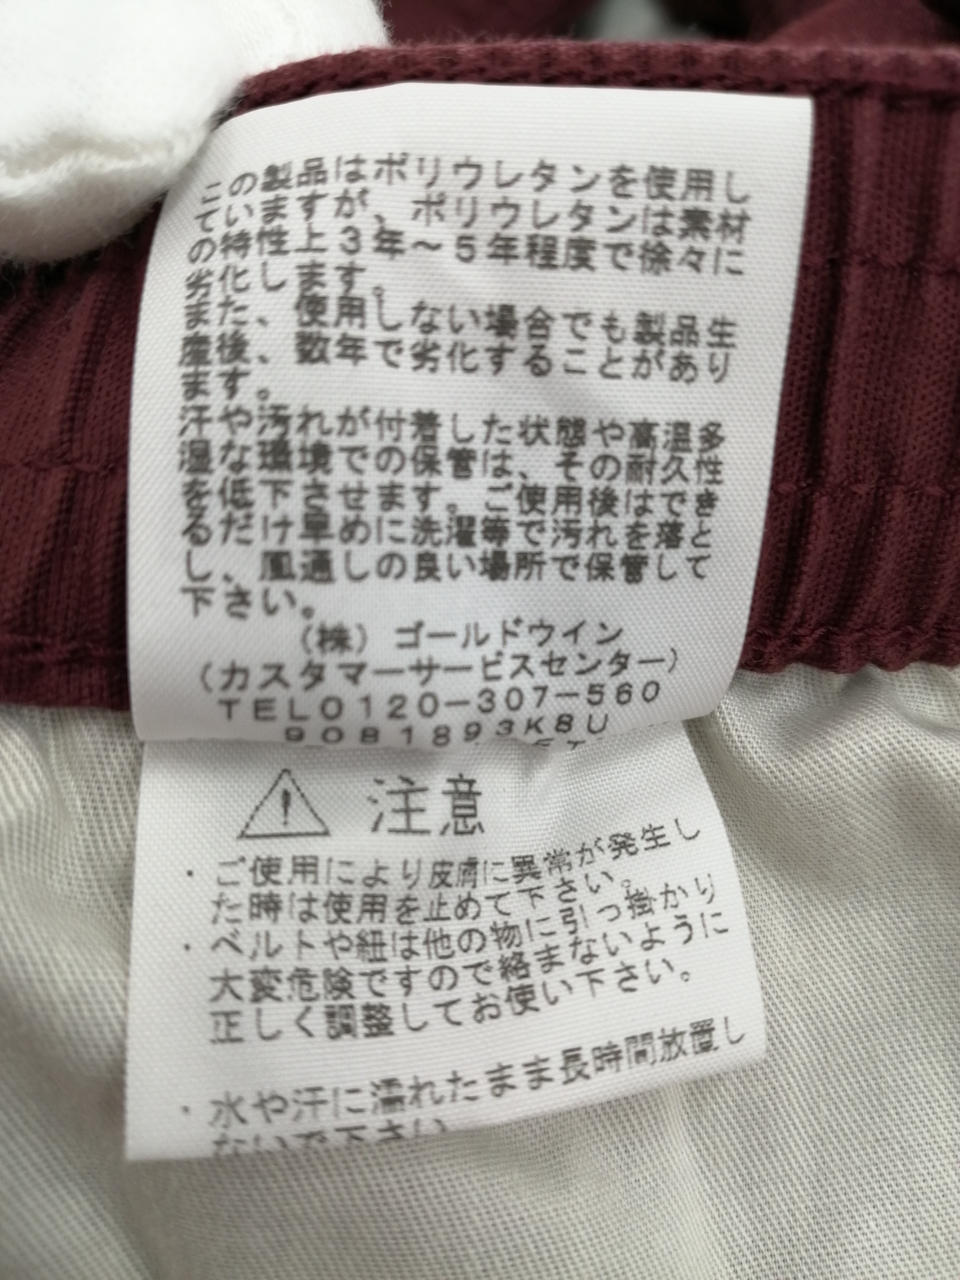 この製品はポリウレタンを使用し
ていますが、ポリウレタンは素材
の特性上3年～5年程度で徐々に
劣化します。
また、使用しない場合でも製品生
産後、数年で劣化することがあり
ます。
汗や汚れが付着した状態や高温多
湿な環境での保管は、その耐久性
を低下させます。ご使用後はでき
るだけ早めに洗濯等で汚れを落と
し、風通しの良い場所で保管して
下さい。
(株)ゴールドウイン
(カスタマーサービスセンター)
TEL0120-307-560
9081893K8U
注意
・ご使用により皮膚に異常が発生し
た時は使用を止めて下さい。
・ベルトや紐は他の物に引っ掛かり
大変危険ですので絡まないように
正しく調整してお使い下さい。
・水や汗に濡れたまま長時間放置し
ないで下さい